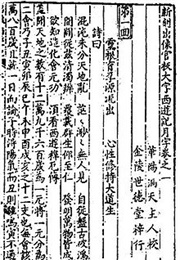 新刻出像官板大字西遊記月字卷之一
華陽洞天主人校
金陵世德堂梓行
第一回
靈根育孕源流出 心性修持大道生
詩曰
混沌未分天地亂 茫茫渺渺無人見 自從盤古破鴻
開闢從茲清濁辨 覆載群生仰至仁 發明萬物皆成
欲知造化會元功 須看西遊釋厄傳
蓋聞天地之數有十二萬九千六百歲為一元將一元分為
二會乃子丑寅卯辰巳午未申酉戌亥之十二支也每會該
萬八百歲且就一日而論子時得陽氣而丑則雞鳴寅不通